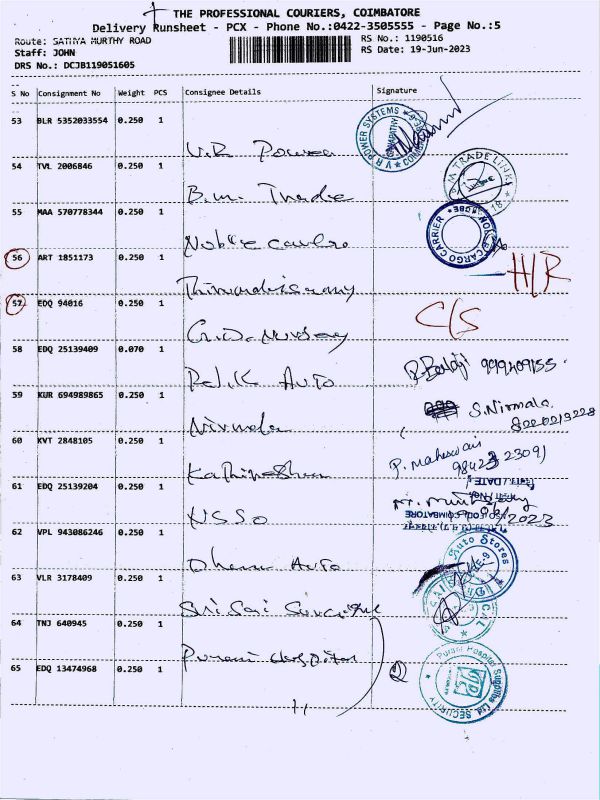 THE PROFESSIONAL COURIERS, COIMBATORE
Delivery Runsheet - PCX - Phone No.:0422-3505555 - Page No.:5
Route: SATHYA MURTHY ROAD
RS No.: 1190516
Staff: JOHN
RS Date: 19-Jun-2023
DRS No.: DCJB119051605
S No Consignment No Weight PCS Consignee Details Signature
53 BLR 5352033554 0.250 1
V.R Power
V R POWER SYSTEMS
54 TVL 2006846 0.250 1
B.M. Trade
M TRADE LINKS
55 MAA 570778344 0.250 1
Noble Cargo
NOBLE CARGO CARRIER
56 ART 1851173 0.250 1
H/R
57 EDQ 94016 0.250 1
C/S
58 EDQ 25139409 0.070 1
P.L.K Auto
59 KUR 694989865 0.250 1
Nirmala
S. Nirmala
8220219228
60 KVT 2848105 0.250 1
98423 23091
61 EDQ 25139204 0.250 1
NSSO
COIMBATORE
/2023
62 VPL 943086246 0.250 1
Auto
Auto Stores
63 VLR 3178409 0.250 1
Sri Sai Surgical
64 TNJ 640945 0.250 1
Purani Hospital
65 EDQ 13474968 0.250 1
2
Purani Hospital Supplies
SECURITY